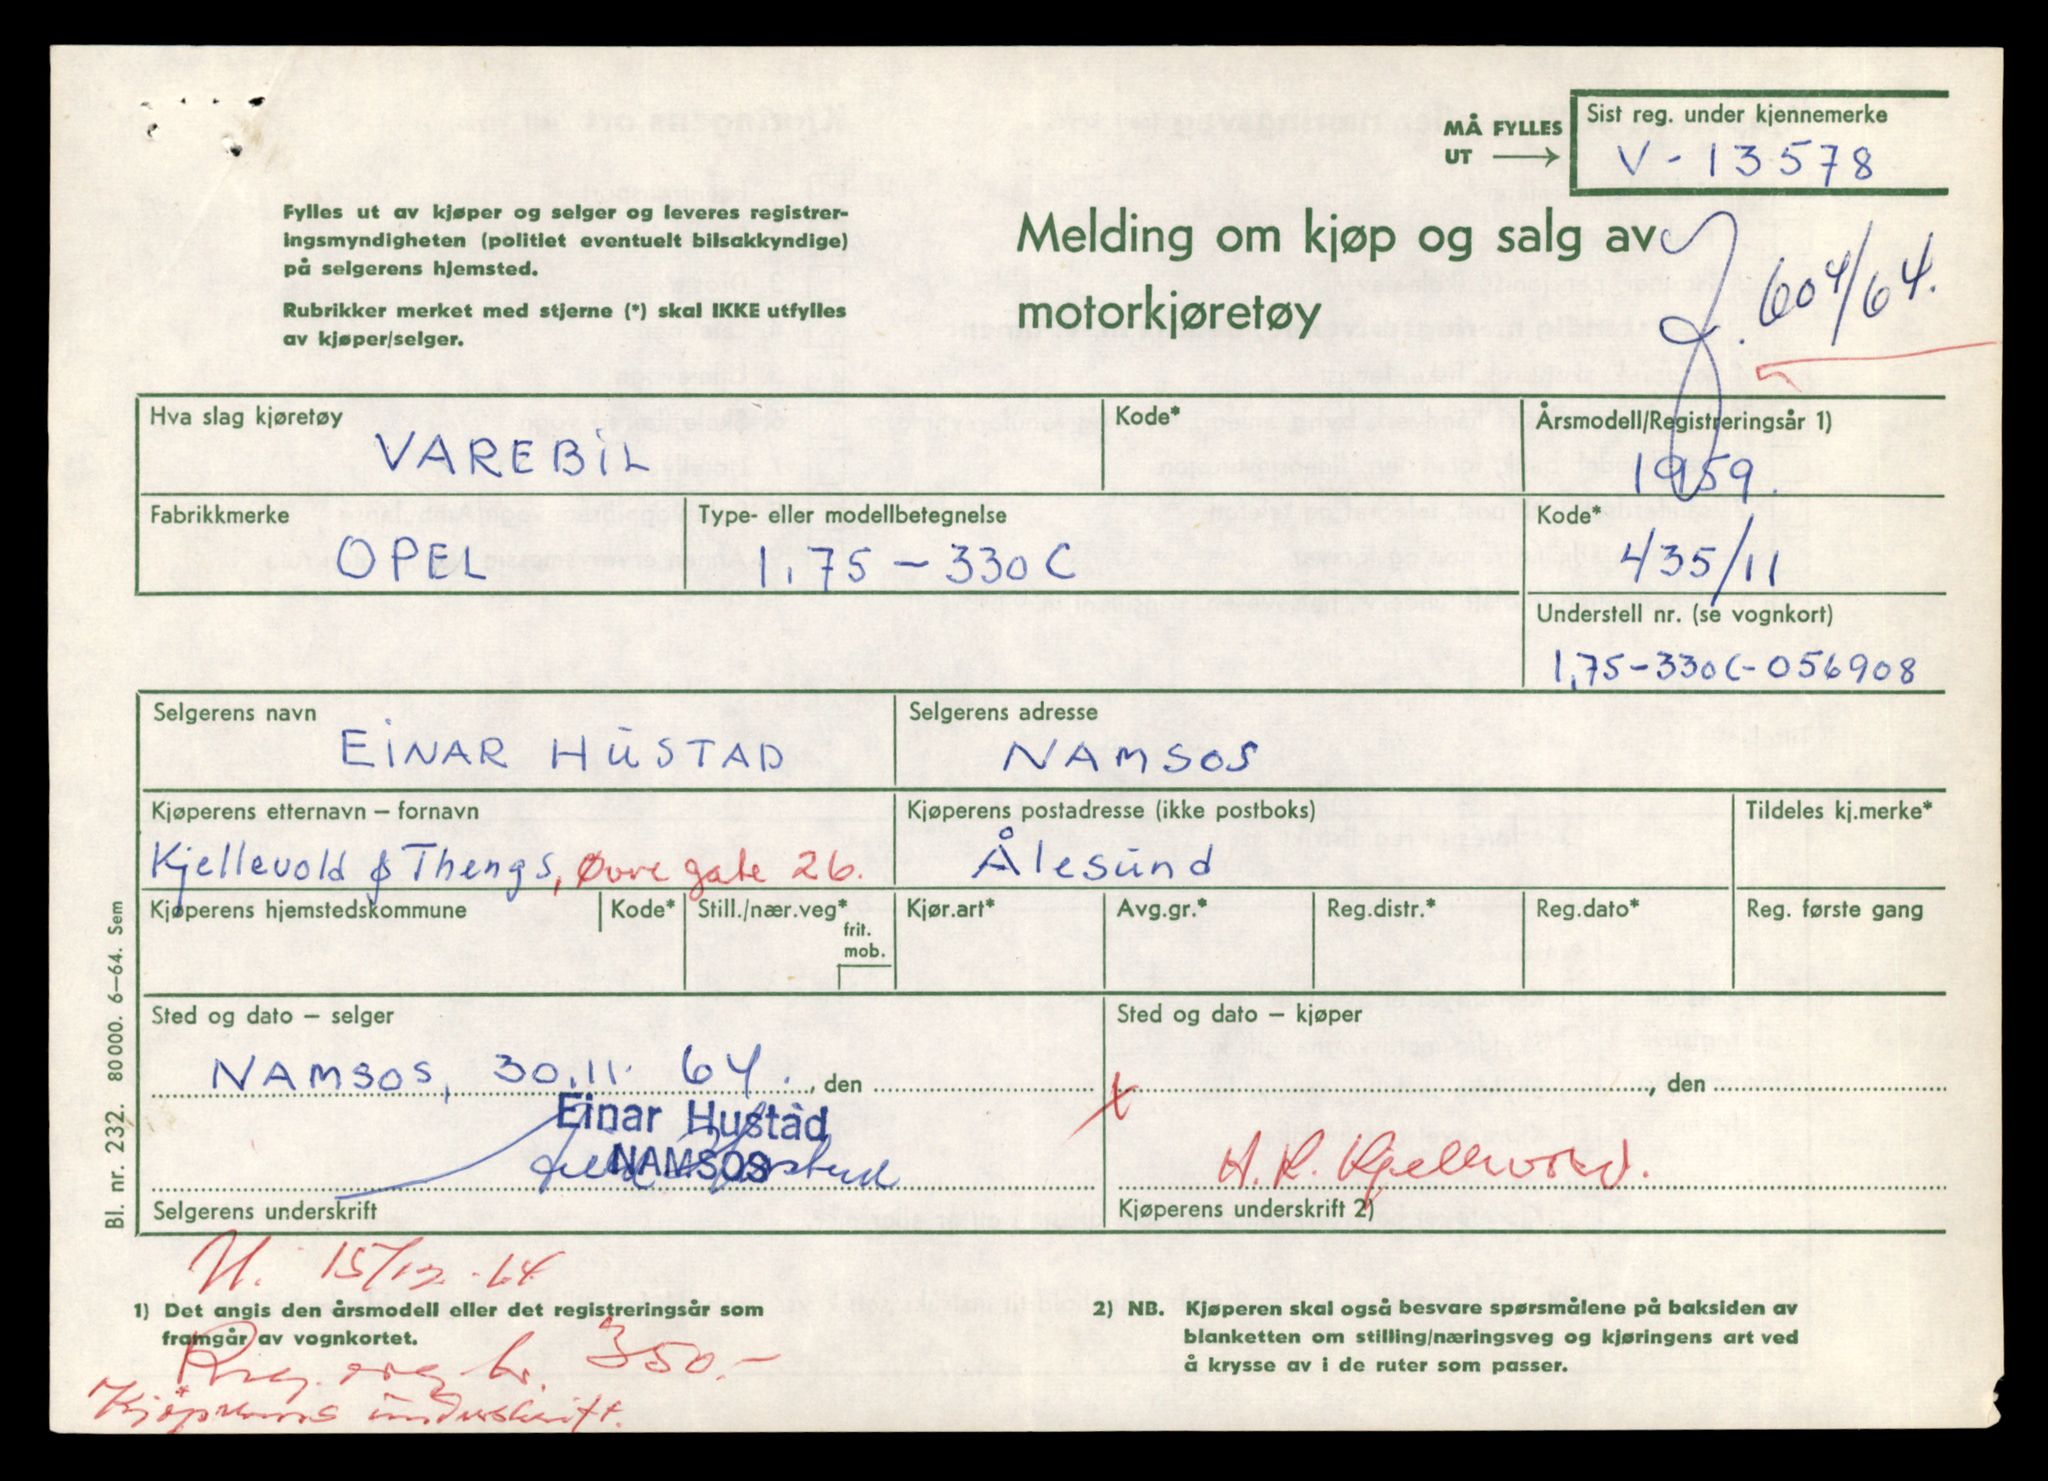 MÅ FYLLES UT
Sist reg. under kjennemerke
V - 13578
Fylles ut av kjøper og selger og leveres registrer-
ingsmyndigheten (politiet eventuelt bilsakkyndige)
på selgerens hjemsted.
Rubrikker merket med stjerne (*) skal IKKE utfylles
av kjøper/selger.
Melding om kjøp og salg av
motorkjøretøy
604/64.
Hva slag kjøretøy
VAREBIL
Kode*
Årsmodell/Registreringsår 1)
1959.
Fabrikkmerke
OPEL
Type- eller modellbetegnelse
1,75 - 330 C
Kode*
435/11
Understell nr. (se vognkort)
1,75-330C-056908
Selgerens navn
EINAR HUSTAD
Selgerens adresse
NAMSOS
Kjøperens etternavn – fornavn
Kjellevold & Thengs, Øvre gate 26.
Kjøperens postadresse (ikke postboks)
Ålesund
Tildeles kj.merke*
Kjøperens hjemstedskommune
Kode*
Still./nær.veg*
frit.
mob.
Kjør.art*
Avg.gr.*
Reg.distr.*
Reg.dato*
Reg. første gang
Sted og dato – selger
NAMSOS, 30.11. 64. , den
Einar Hustad
NAMSOS
Selgerens underskrift
Sted og dato – kjøper
x , den
A. K. Kjellevold.
Kjøperens underskrift 2)
Bl. nr. 232. 80000. 6–64. Sem
U. 15/12-64
1) Det angis den årsmodell eller det registreringsår som
framgår av vognkortet.
Reg. avg kr. 350.-
Kjøperens underskrift.
2) NB. Kjøperen skal også besvare spørsmålene på baksiden av
blanketten om stilling/næringsveg og kjøringens art ved
å krysse av i de ruter som passer.